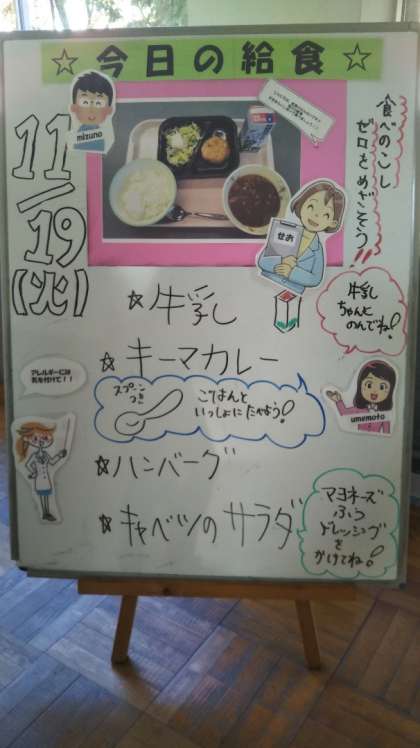 ☆今日の給食☆
mizuno
食べのこし
ゼロをめざそう!!
11/19(火)
せお
☆牛乳
牛乳
ちゃんと
のんでね!
☆キーマカレー
アレルギーには
気を付けて!!
スプーン
つき
ごはんと
いっしょにたべよう!
umemoto
☆ハンバーグ
☆キャベツのサラダ
マヨネーズ
ふう
ドレッシング
を
かけてね!